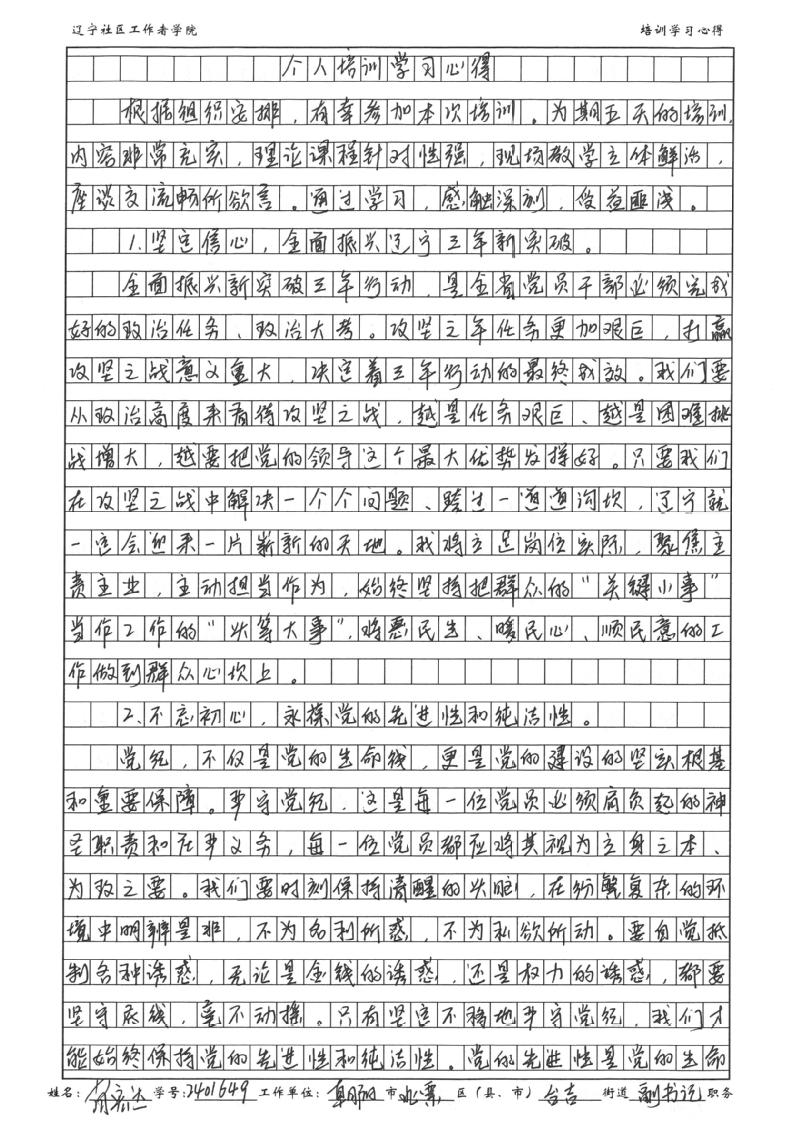 辽宁社区工作者学院 培训学习心得
个人培训学习心得
根据组织安排，有幸参加本次培训。为期五天的培训，
内容非常充实，理论课程针对性强，现场教学立体鲜活，
座谈交流畅所欲言。通过学习，感触深刻，受益匪浅。
1.坚定信心，全面振兴辽宁三年新突破。
全面振兴新突破三年行动，是全省党员干部必须完成
好的政治任务、政治大考。攻坚之年任务更加艰巨，打赢
攻坚之战意义重大，决定着三年行动的最终成效。我们要
从政治高度来看待攻坚之战，越是任务艰巨、越是困难挑
战增大，越要把党的领导这个最大优势发挥好。只要我们
在攻坚之战中解决一个个问题、跨过一道道沟坎，辽宁就
一定会迎来一片崭新的天地。我将立足岗位实际，聚焦主
责主业，主动担当作为，始终坚持把群众的“关键小事”
当作工作的“头等大事”，将惠民生、暖民心、顺民意的工
作做到群众心坎上。
2.不忘初心，永葆党的先进性和纯洁性。
党纪，不仅是党的生命线，更是党的建设的坚实根基
和重要保障。严守党纪，这是每一位党员必须肩负起的神
圣职责和庄严义务，每一位党员都应将其视为立身之本、
为政之要。我们要时刻保持清醒的头脑，在纷繁复杂的环
境中明辨是非，不为名利所惑，不为私欲所动。要自觉抵
制各种诱惑，无论是金钱的诱惑，还是权力的诱惑，都要
坚守底线，毫不动摇。只有坚定不移地严守党纪，我们才
能始终保持党的先进性和纯洁性。党的先进性是党的生命
姓名： 学号：2401649 工作单位：朝阳市北票区（县、市）台吉街道副书记职务